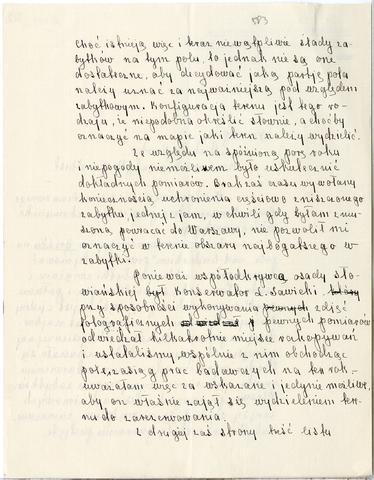 583
choć istnieją więc i teraz niewątpliwie ślady za-
bytków na tym polu, to jednak nie są one
dostateczne, aby decydować jaką partję pola
należy uznać za najważniejszą pod względem
zabytkowym. Konfiguracja terenu jest tego ro-
dzaju, że niepodobna określić słownie, a choćby
oznaczyć na mapie jaki teren należy wydzielić.
Ze względu na spóźnioną porę roku
i niepogody niemożliwem było uskutecznić
dokładnych pomiarów. Brak zaś czasu wywołany
koniecznością uchronienia częściowo zniszczonego
zabytku, jednej z jam, w chwili gdy byłam zmu-
szoną powracać do Warszawy, nie pozwolił mi
oznaczyć w terenie obszaru najbogatszego w
zabytki.
Ponieważ współodkrywcą osady sło-
wiańskiej był Konserwator L. Sawicki
przy sposobności wykonywania pewnych zdjęć
fotograficznych i pewnych pomiarów
odwiedzał kilkakrotnie miejsce rozkopywań
i ustalaliśmy, wspólnie z nim obchodząc
pola zasiąg prac badawczych na ten rok -
uważałam więc za wskazane i jedynie możliwe,
aby on właśnie zajął się wydzieleniem tere-
nu do zarezerwowania.
Z drugiej zaś strony treść listu